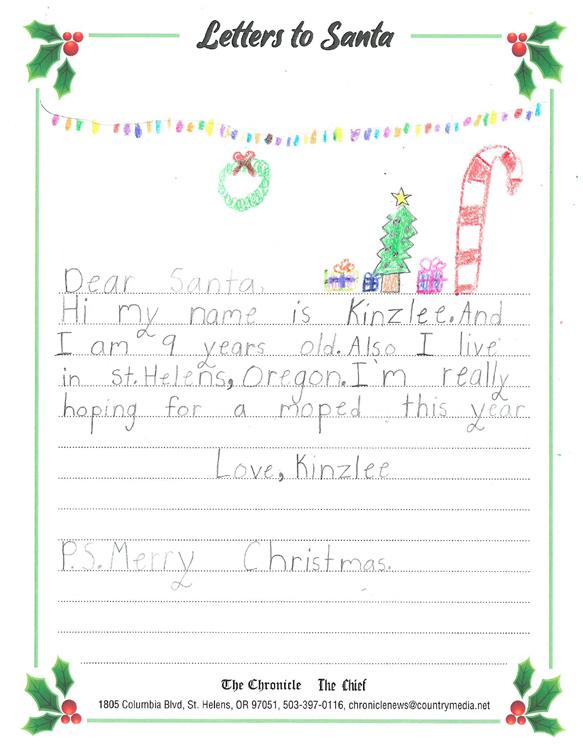 Letters to Santa
Dear Santa,
Hi my name is Kinzlee. And
I am 9 years old. Also I live
in st. Helens, Oregon. I'm really
hoping for a moped this year
Love, Kinzlee
P.S. Merry Christmas.
The Chronicle The Chief
1805 Columbia Blvd, St. Helens, OR 97051, 503-397-0116, chroniclenews@countrymedia.net